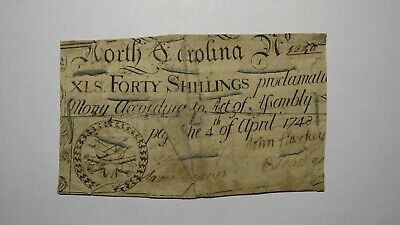 North Carolina No 1250
XLS. FORTY SHILLINGS proclamati
Mony According to Act of Assembly
pay ne 4th of April 1748
John Haskey
Sam